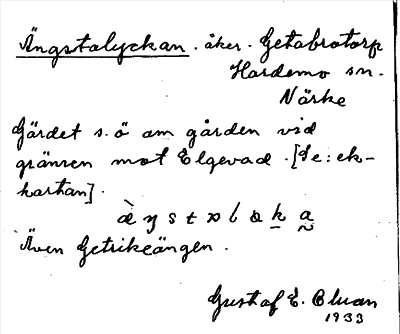 Ängstalyckan. åker. Getabrotorp
Hardemo sn.
Närke
Gärdet s.ö om gården vid
gränsen mot Elgevad. [Se: ek-
kartan].
Även Getrikeängen.
Gustaf E.
1933